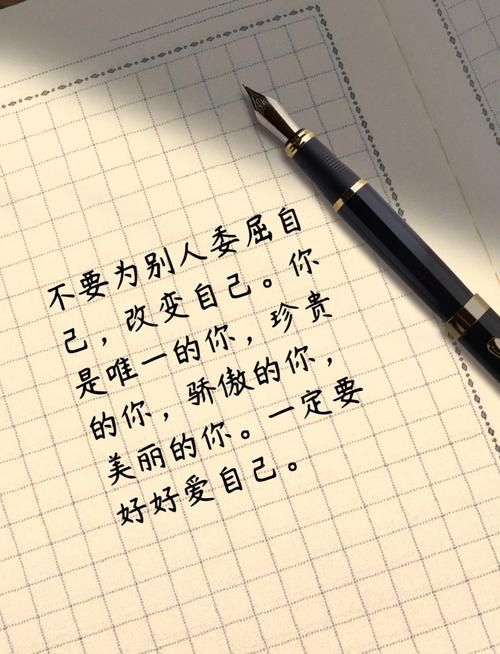 不要为别人委屈自
己，改变自己。你
是唯一的你，珍贵
的你，骄傲的你，
美丽的你。一定要
好好爱自己。